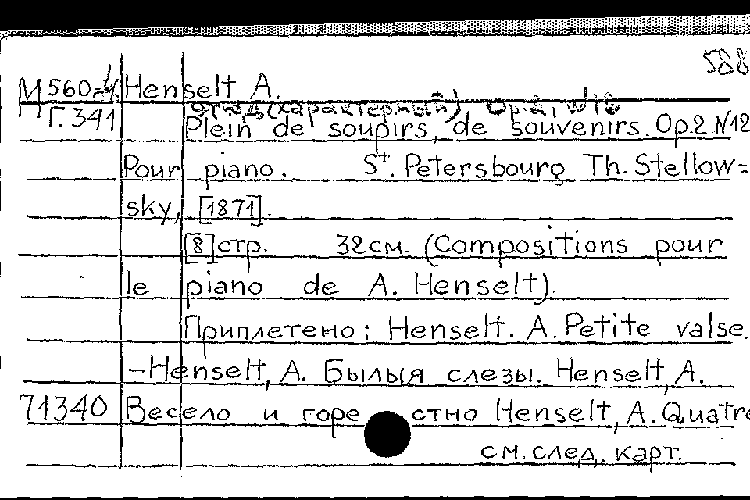 588
М560-4 Henselt A.
Этюд (характерный) Op. 2, №12
Г.341 Plein de soupirs, de souvenirs. Op.2 N12
Pour piano. St. Petersbourg Th. Stellow=
sky, [1871].
[8] стр. 32см. (Compositions pour
le piano de A. Henselt).
Приплетено: Henselt. A. Petite valse.
-Henselt, A. Былыя слезы. Henselt, A.
71340 Весело и горестно Henselt, A. Quatre
см. след. карт.